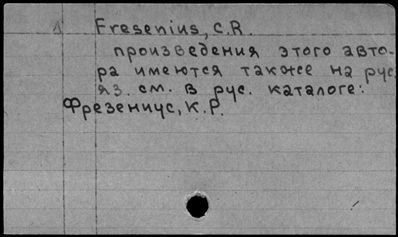 Fresenius, C.R.
произведения этого авто-
ра имеются также на рус.
яз. см. в рус. каталоге:
Фрезениус, К.Р.